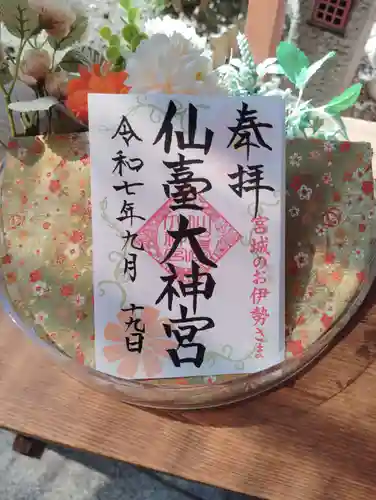 奉拝
宮城のお伊勢さま
仙臺大神宮
令和七年九月十九日